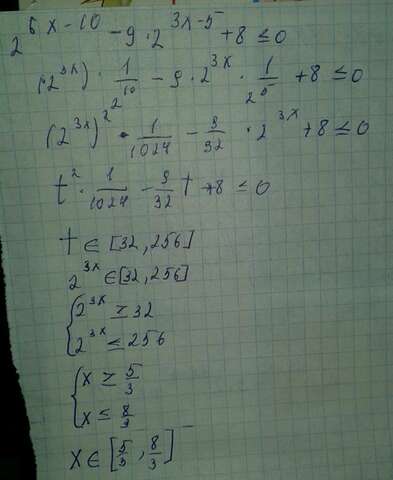 2^{6x-10} - 9 · 2^{3x-5} + 8 ≤ 0
(2^{3x})^2 · 1/2^{10} - 9 · 2^{3x} · 1/2^5 + 8 ≤ 0
(2^{3x})^2 · 1/1024 - 9/32 · 2^{3x} + 8 ≤ 0
t^2 · 1/1024 - 9/32 t + 8 ≤ 0
t ∈ [32, 256]
2^{3x} ∈ [32, 256]
{ 2^{3x} ≥ 32
2^{3x} ≤ 256
{ x ≥ 5/3
x ≤ 8/3
x ∈ [5/3, 8/3]